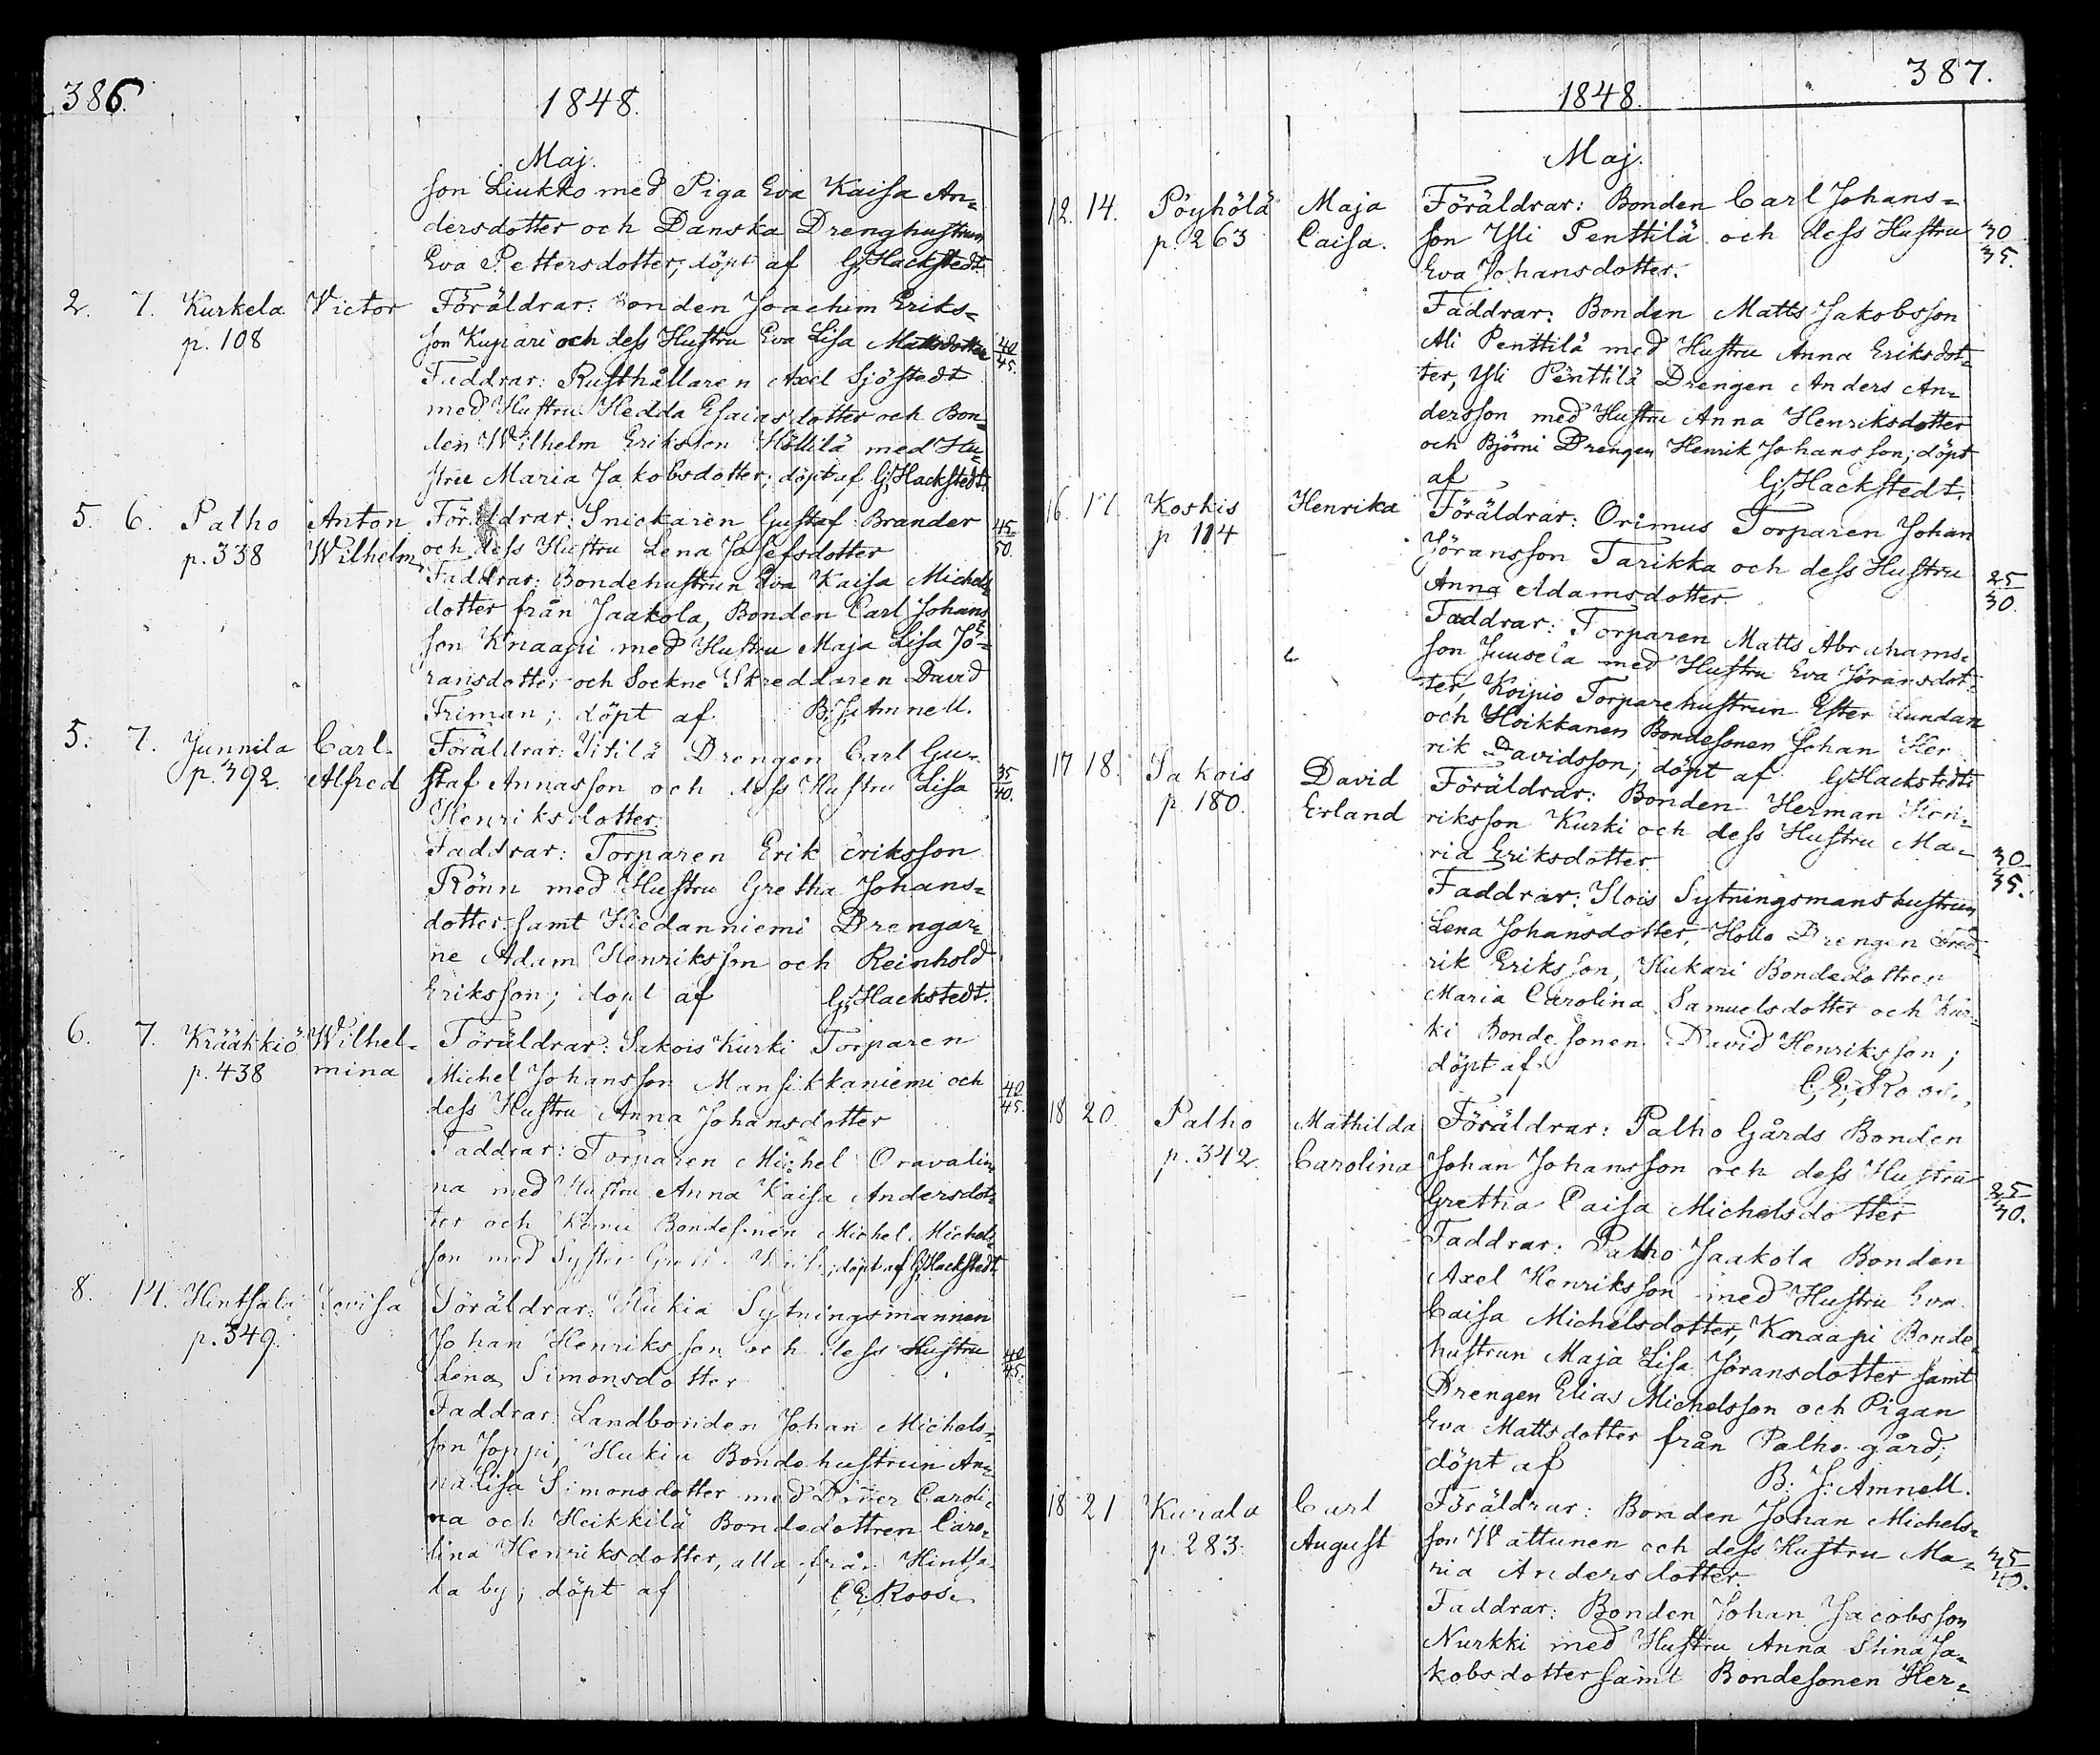 386.
1848.
Maj.
son Liukko med Piga Eva Kaisa An=
dersdotter och Danska Drenghustrun
Eva Pettersdotter; döpt af G; Hackstedt.
2. 7. Kurkela Victor Föräldrar: Bonden Joachim Eriks=
p. 108 son Kupari och dess Hustru Eva Lisa Mattsdotter 40/45.
Faddrar: Rusthållaren Axel Sjöstedt
med Hustru Hedda Esaiasdotter och Bon=
den Wilhelm Eriksson Höltilä med Hu=
stru Maria Jakobsdotter; döpt af G; Hackstedt.
5. 6. Palho Anton Föräldrar: Snickaren Gustaf Brander 45/50.
p. 338 Wilhelm och dess Hustru Lena Josefsdotter
Faddrar: Bondehustrun Eva Kaisa Michels=
dotter från Jaakola, Bonden Carl Johans=
son Knaapi med Hustru Maja Lisa Jö=
ransdotter och Sockne Skreddaren David
Friman; döpt af B: J: Amnell.
5. 7. Junnila Carl Föräldrar: Yitilä Drengen Carl Gu=
p. 392. Alfred staf Annasson och dess Hustru Lisa 35/40.
Henriksdotter.
Faddrar: Torparen Erik Eriksson
Rönn med Hustru Gretha Johans=
dotter samt Hiedanniemi Drengar=
ne Adam Henriksson och Reinhold
Eriksson; döpt af G; Hackstedt.
6. 7. Krääkkiö Wilhel= Föräldrar: Sakois Kurki Torparen
p. 438 mina Michel Johansson Mansikkaniemi och 40/45.
dess Hustru Anna Johansdotter
Faddrar: Torparen Michel Oravalin=
na med Hustru Anna Kaisa Andersdot=
ter och Bondesonen Michel Michels=
son med Syster döpt af G; Hackstedt.
8. 14. Hintsala Lovisa Föräldrar: Hukia Sytningsmannen
p. 349. Johan Henriksson och dess Hustru 40/45.
Lena Simonsdotter
Faddrar: Landbonden Johan Michels=
son Joppi, Hukia Bondehustrun An=
na Lisa Simonsdotter med Dotter Caroli=
na och Heikkilä Bondedottren Caro=
lina Henriksdotter, alla från Hintsa=
la by; döpt af C; E; Roos.
387.
1848.
Maj.
12. 14. Pöyhölä Maja Föräldrar: Bonden Carl Johans=
p. 263 Caisa. son Yli Penttilä och dess Hustru 30/35.
Eva Johansdotter.
Faddrar: Bonden Matts Jakobsson
Ali Penttilä med Hustru Anna Eriksdot=
ter, Yli Penttilä Drengen Anders An=
dersson med Hustru Anna Henriksdotter
och Björni Drengen Henrik Johansson; döpt
af G; Hackstedt.
16. 17. Koskis Henrika Föräldrar: Orimus Torparen Johan
p 114 Jöransson Tarikka och dess Hustru 25/30.
Anna Adamsdotter.
Faddrar: Torparen Matts Abrahams=
son Juusela med Hustru Eva Jöransdot=
ter, Koipio Torparehustrun Ester Lundan
och Hoikkanen Bondesonen Johan Hen
rik Davidsson; döpt af G; Hackstedt.
17 18. Sakois David Föräldrar: Bonden Herman Hen=
p. 180. Erland riksson Kurki och dess Hustru Ma= 30/35.
ria Eriksdotter
Faddrar: Ilois Sytningsmanshustrun
Lena Johansdotter, Hollo Drengen Fred=
rik Eriksson, Hukari Bondedottren
Maria Carolina Samuelsdotter och Kur=
ki Bondesonen David Henriksson;
döpt af C; E; Roos.
18 20. Palho Mathilda Föräldrar: Palho Gårds Bonden
p. 342. Carolina Johan Johansson och dess Hustru 25/30.
Gretha Caisa Michelsdotter
Faddrar: Palho Jaakola Bonden
Axel Henriksson med Hustru Eva
Caisa Michelsdotter, Knaapi Bonde=
hustrun Maja Lisa Jöransdotter samt
Drengen Elias Michelsson och Pigan
Eva Mattsdotter från Palho gård;
döpt af B: J: Amnell.
18 21 Kurala Carl Föräldrar: Bonden Johan Michels=
p. 283. August son Wattunen och dess Hustru Ma= 35/40.
ria Andersdotter.
Faddrar: Bonden Johan Jacobsson
Nurkki med Hustru Anna Stina Ja=
kobsdotter samt Bondesonen Her=